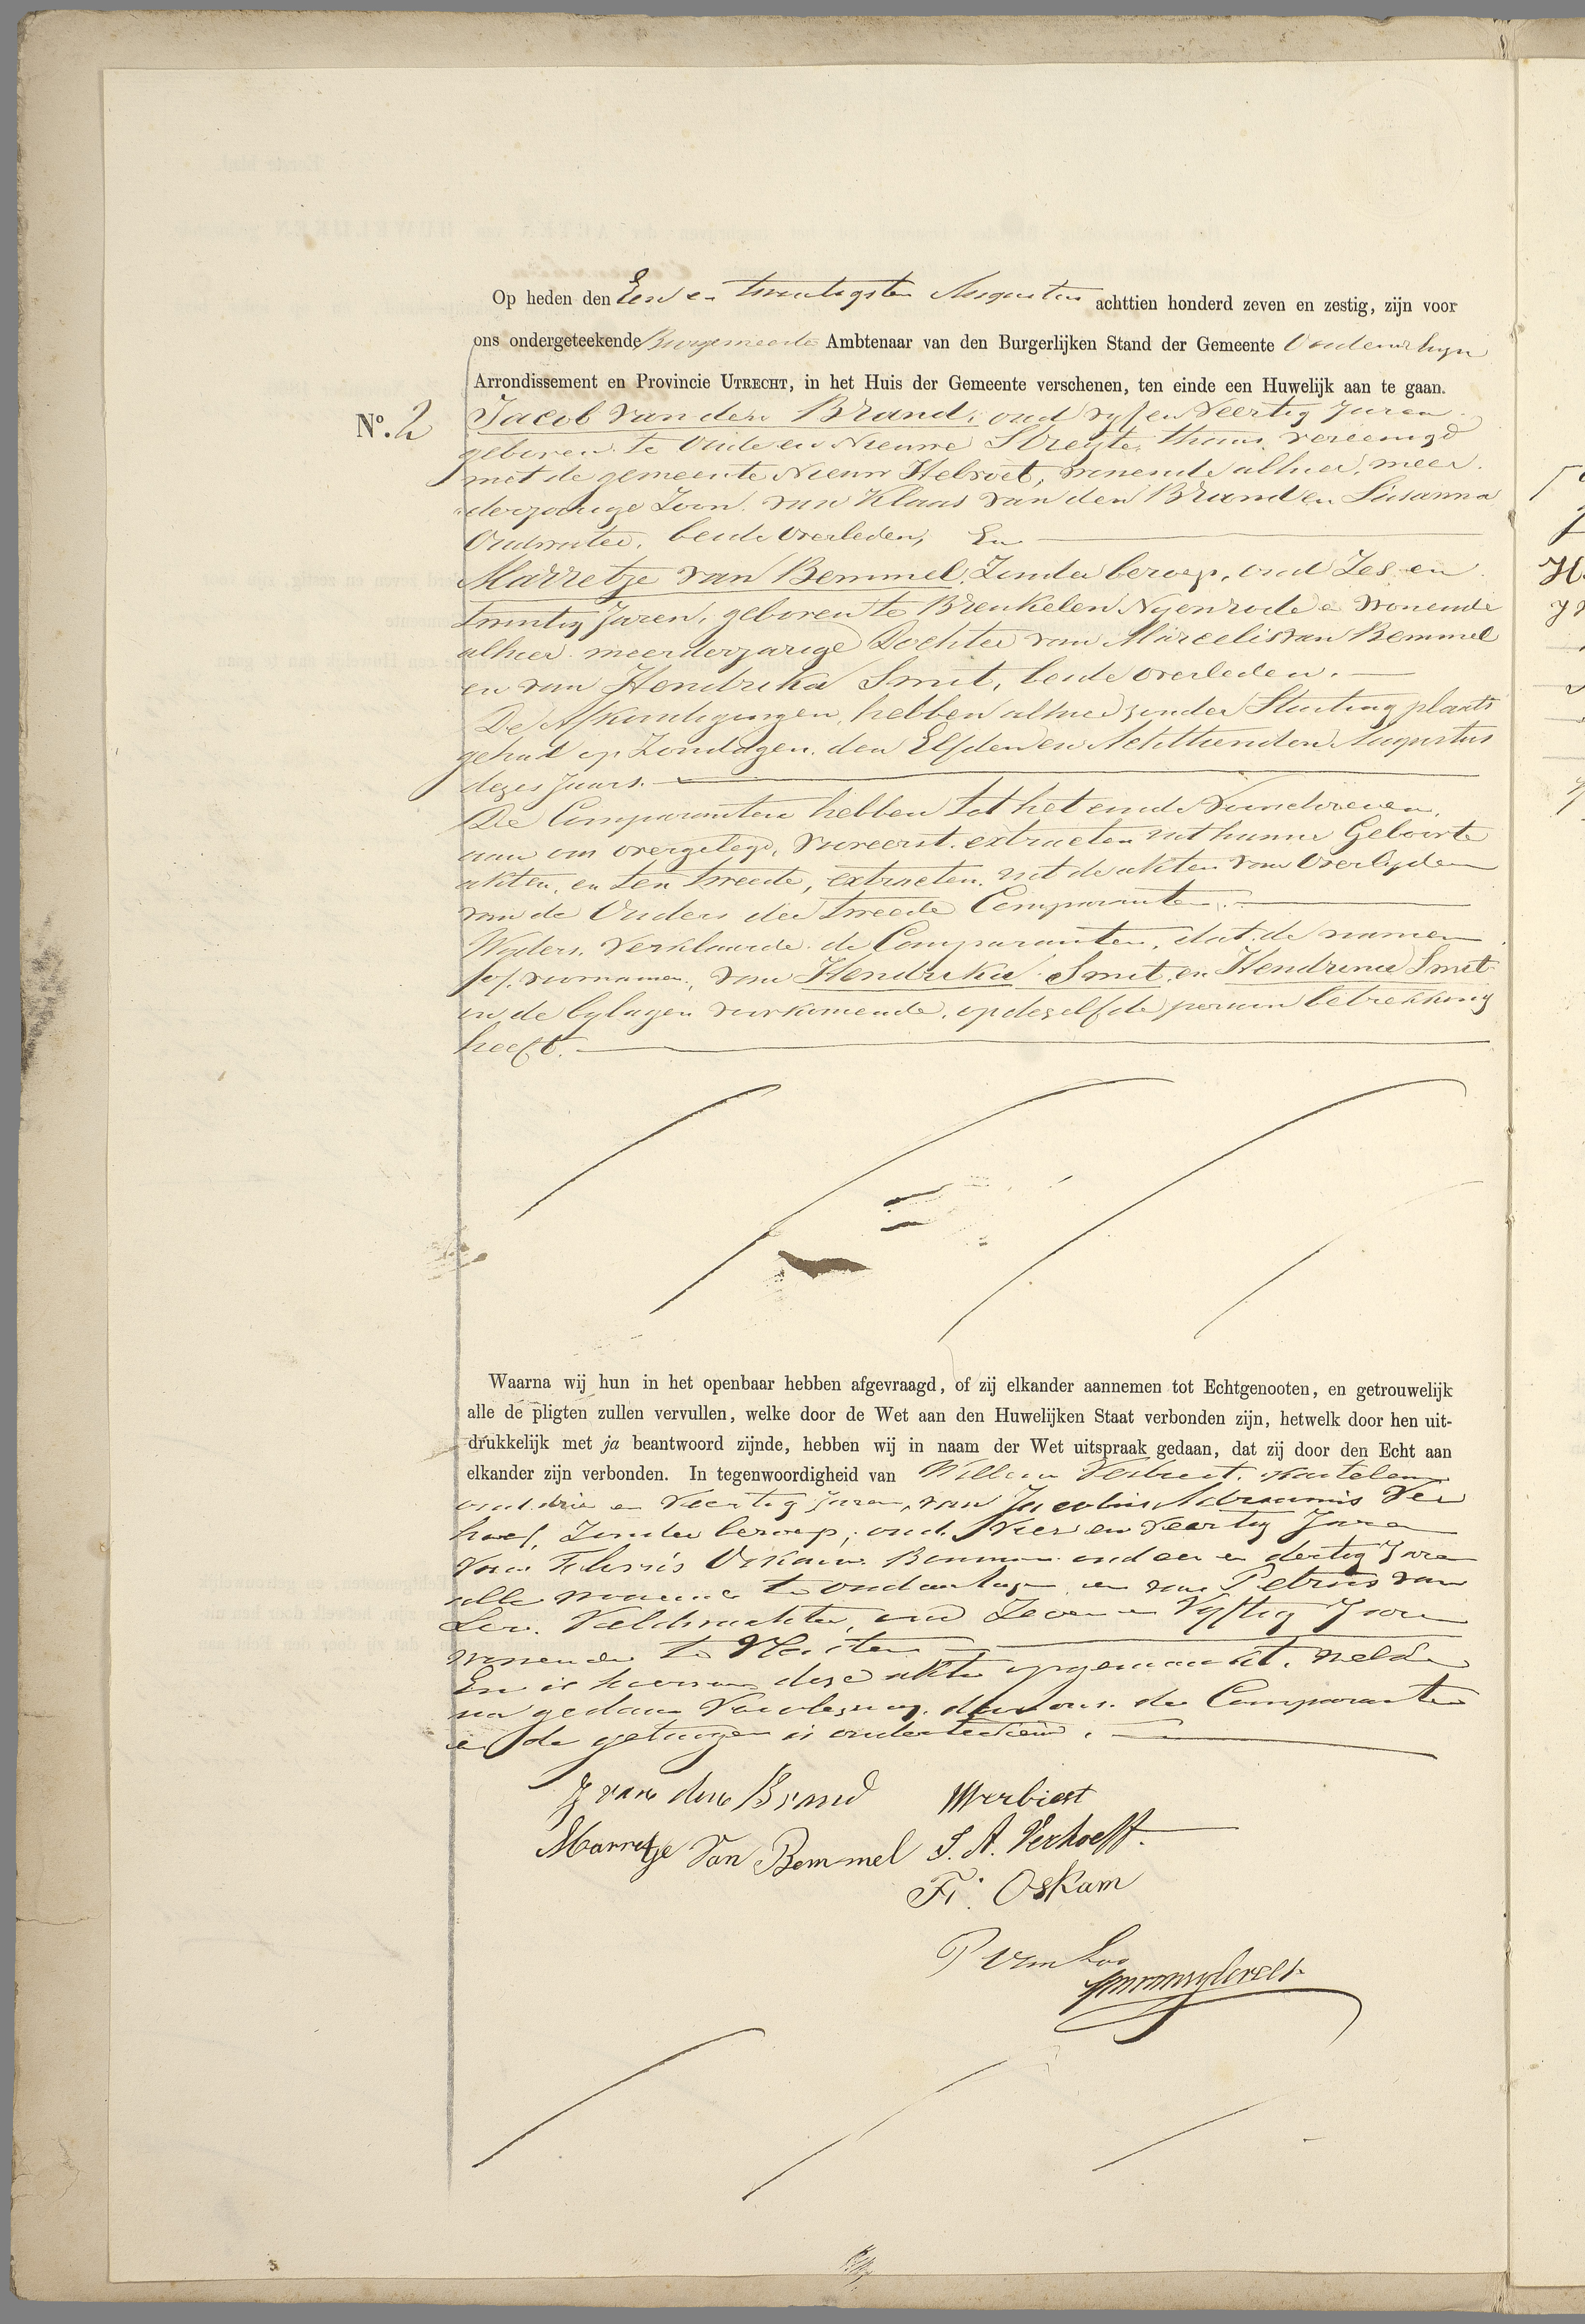 Op heden den Een en twintigsten Augustus achttien honderd zeven en zestig, zijn voor
ons ondergeteekende Burgemeester Ambtenaar van den Burgerlijken Stand der Gemeente Oudenrhyn
Arrondissement en Provincie UTRECHT, in het Huis der Gemeente verschenen, ten einde een Huwelijk aan te gaan.
Nº. 2 Jacob van den Brand, oud vyf en Veertig Jaren
geboren te Oude en Nieuwe Struyte, thans vereenigd
met de gemeente Nieuw Helvoet, wonende alhier, meer
derjarige Zoon van Klaas van den Brand en Susanna
Oudwater, beide Overleden, En
Marretje van Bemmel, Zonder beroep, oud Zes en
twintig Jaren, geboren te Breukelen Nyenrode en wonende
alhier meerderjarige Dochter van Marcelis van Bemmel
en van Hendrika Smit, beide overleden.
De Afkondigingen hebben alhier zonder Stuiting plaats
gehad op Zondagen den Elfden en Achttienden Augustus
dezes Jaars.
De Comparanten hebben tot het einde
aan ons overgelegd, vooreerst extracten uit hunne Geboorte
akten, en ten tweede, extracten uit de akten van Overlyden
van de Ouders der tweede Comparante.
Wyders Verklaarde de Comparanten, dat de namen
of voornamen, van Hendrika Smit en Hendrina Smit
in de bylagen voorkomende, op dezelfde persoon betrekking
heeft.
Waarna wij hun in het openbaar hebben afgevraagd, of zij elkander aannemen tot Echtgenooten, en getrouwelijk
alle de pligten zullen vervullen, welke door de Wet aan den Huwelijken Staat verbonden zijn, hetwelk door hen uit-
drukkelijk met ja beantwoord zijnde, hebben wij in naam der Wet uitspraak gedaan, dat zij door den Echt aan
elkander zijn verbonden. In tegenwoordigheid van Willem Verbiest, Kastelein
oud drie en Veertig Jaren, van Jacobus Adrianus Ver
hoef, Zonder beroep, oud Vier en Veertig Jaren
van Floris Oskam Bouwman oud een en dertig Jaren
alle wonende te Oudenrhyn en van Petrus van
Loo. Veldwachter, oud Zeven en Vyftig Jaren
wonende te Vleuten
En is hiervan deze akte opgemaakt, welke
na gedane Voorlezing, door ons, de Comparanten
en de getuigen is onderteekend.
J van den Brand WVerbiest
Marretje Van Bemmel J. A. Verhoeff.
Fs. Oskam
P van Loo